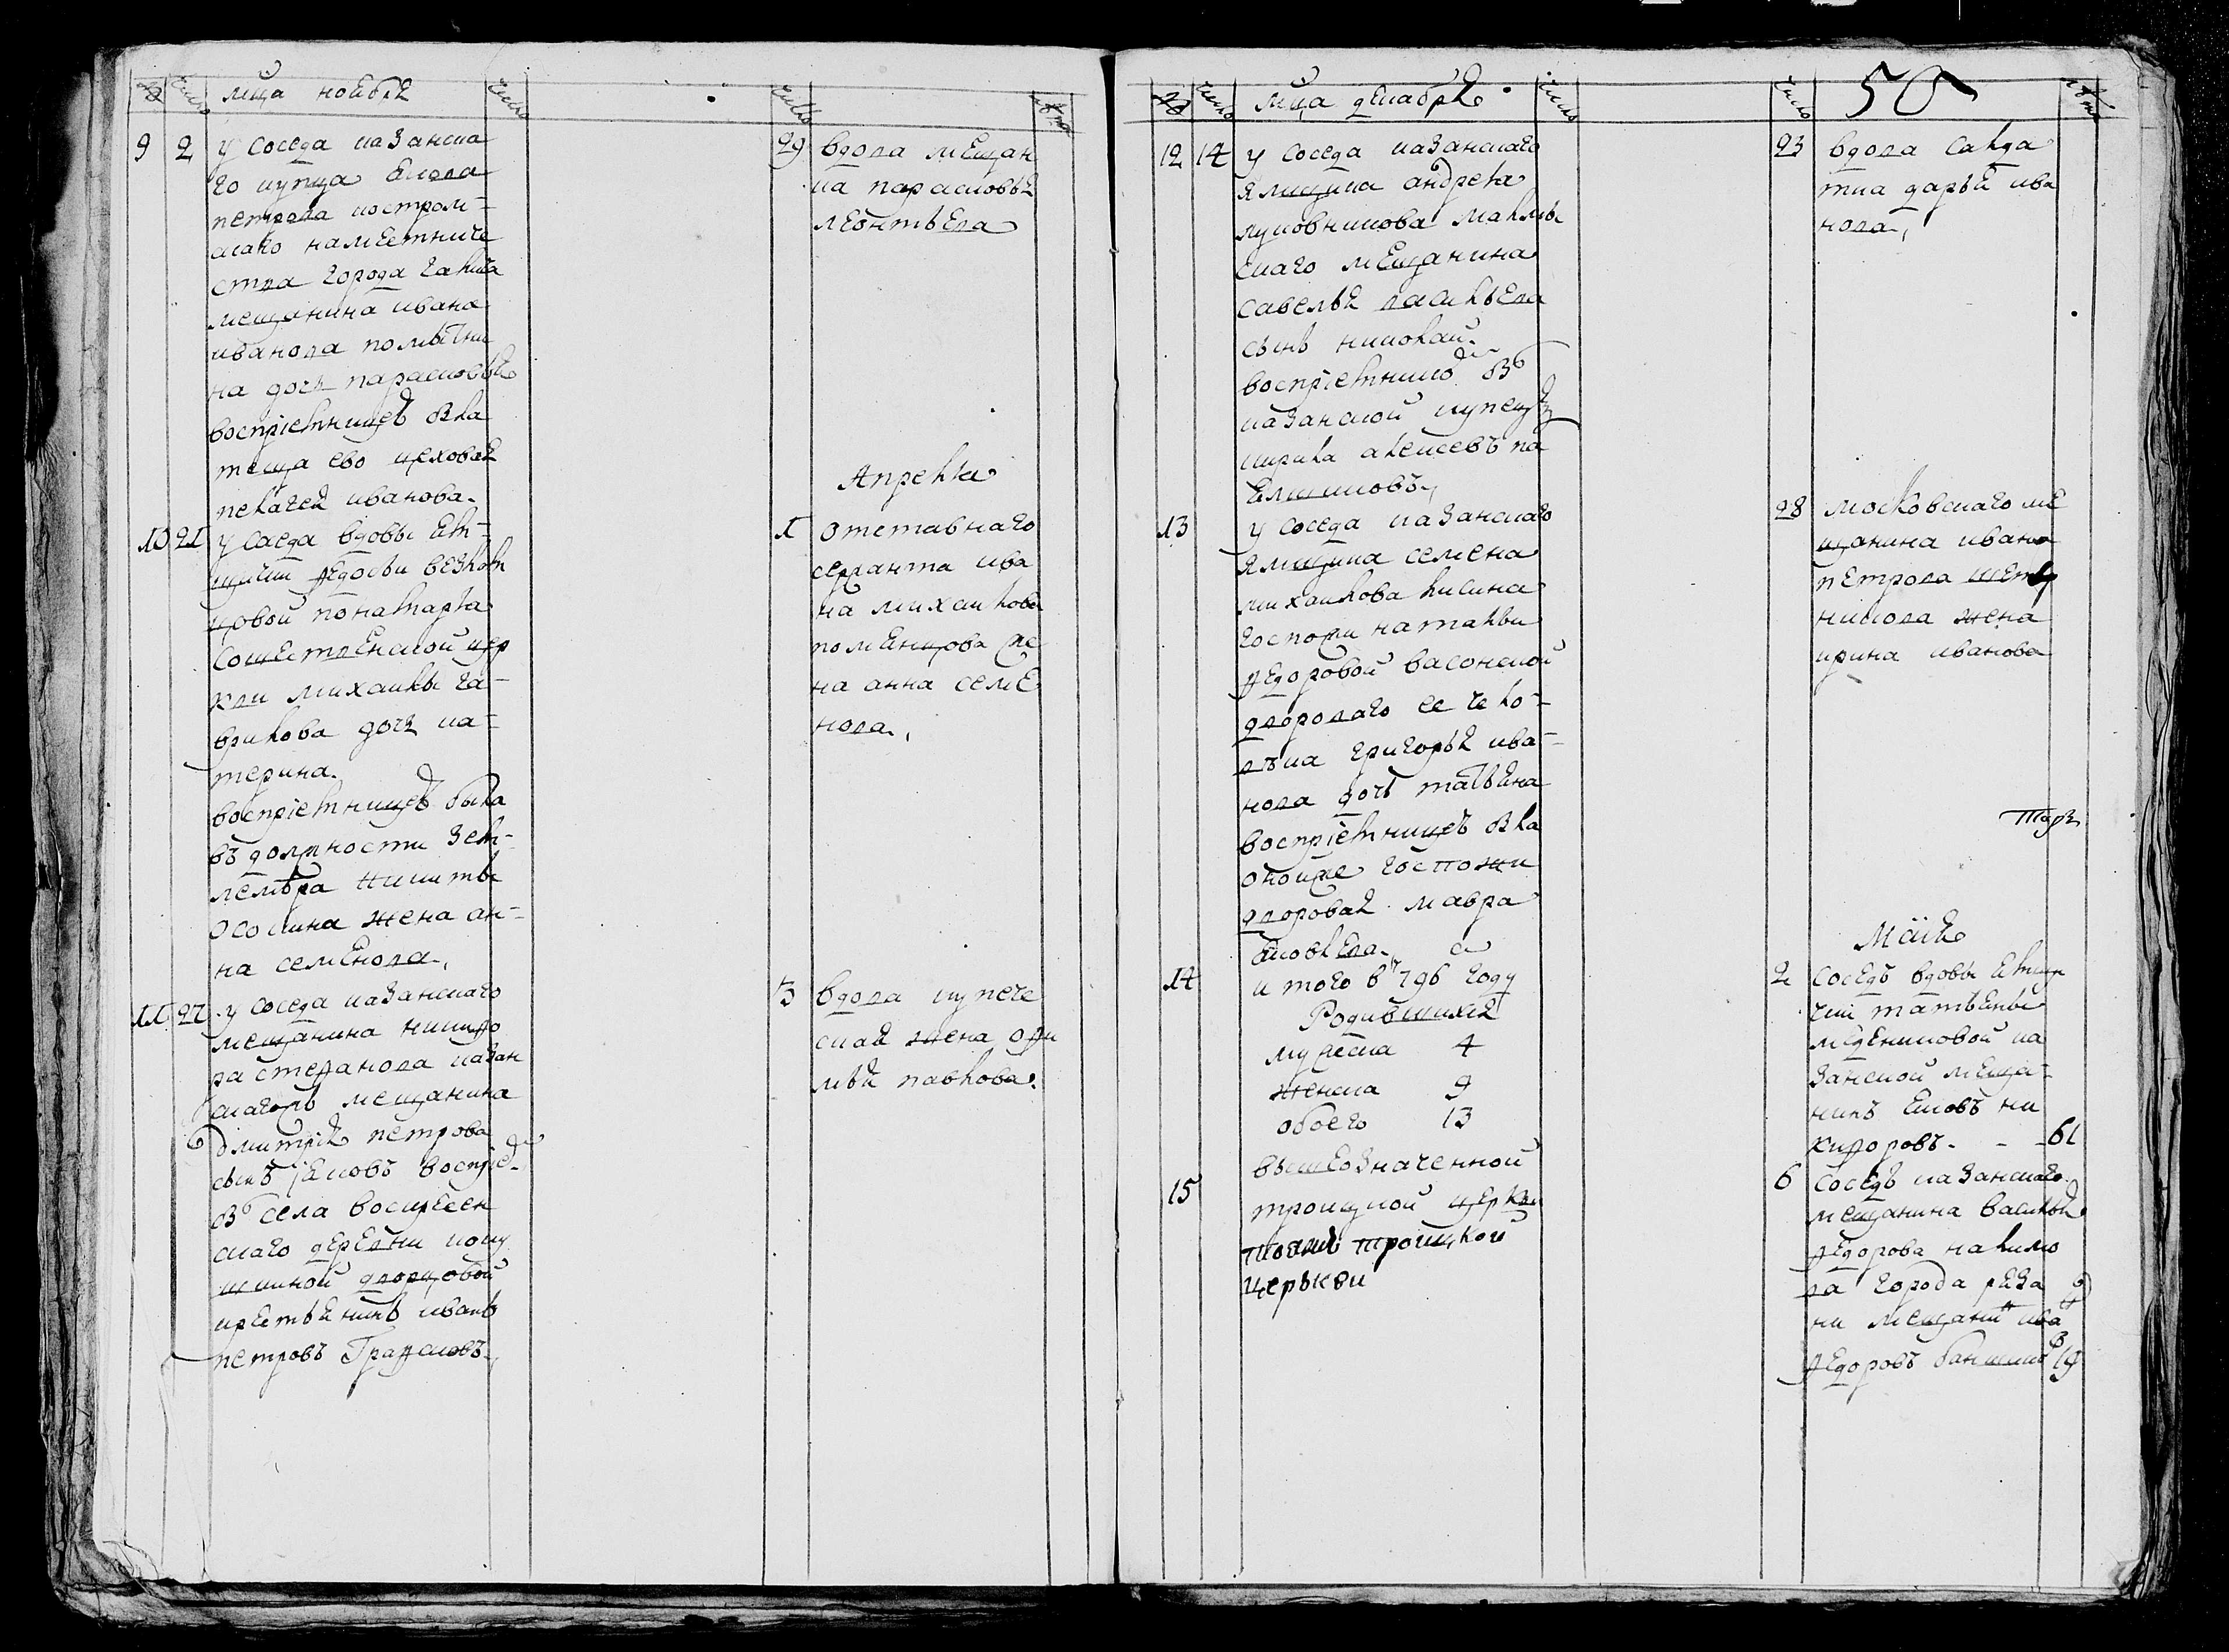 №
число
мца ноября
число
число
лѣта
9 2 у соседа казанска
го купца якова
петрова костром-
скаго наместниче
ства города галича
мещанина ивана
иванова
на дочь парасковья
воспрiемницей была
теща ево цеховая
пелагея иванова
10 21 у саседа вдовы ям-
щички федосьи
цовой поналтаря
сошественской цер
кви михаилы га-
врилова дочь ка-
терина
воспрiемницей была
въ должности зем-
лемера никиты
осокина жена ан-
на семенова
11 27 у соседа казанскаго
мещанина никифо
ра стефанова казан
скагожъ мещанина
дмитрiя петрова
сынъ iяковъ воспрiе
был села воскресен
скаго деревни
дворцовой
крестьянинъ иванъ
петровъ
29 вдова мещан
ка парасковья
леонтьева
Апреля
1 отставнаго
сержанта ива
на михаилова
поменцова же
на анна семе
нова
3 вдова купече
ская жена
павлова
№
число
мца декабря
число
число
50
лѣта
12 14 у соседа казанскаго
ямщика андрея
луковникова малмы
скаго мещанина
савелья васильева
сынъ николай
воспрiемникъ был
казанской купецъ
кирила алексеевъ
13 у соседа казанскаго
ямщика семена
михаилова лисина
госпожи натальи
федоровой
двороваго ее чело-
века григорья ива-
нова дочь татьяна
воспрiемницей была
оной же госпожи
дворовая мавра
яковлева
14 и того в 796 году
Родившихся
мужеска 4
женска 9
обоего 13
15 вышеозначенной
троицкой церкви
троицкой
церькви
23 вдова салда
тка дарья ива
нова
28 московскаго ме
щанина ивана
петрова
жена
ирина иванова
Маiя
2 соседъ вдовы ямщи
чки татьяны
меденниковой ка
занской меща-
нинъ яковъ ни
кифоровъ - - 61
6 соседъ казанскаго
мещанина василья
федорова
города ряза
ни мещанин ива
федоровъ 19